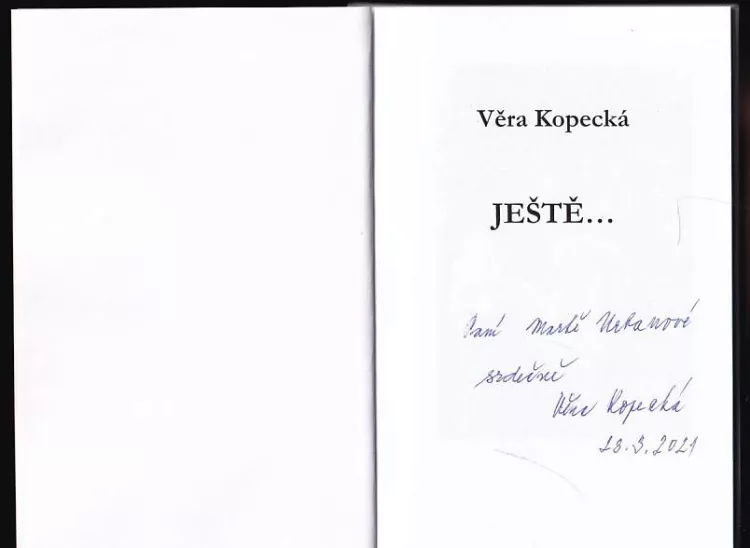 Věra Kopecká
JEŠTĚ...
Paní Martě Urbanové
srdečně
Věra Kopecká
28.3.2021